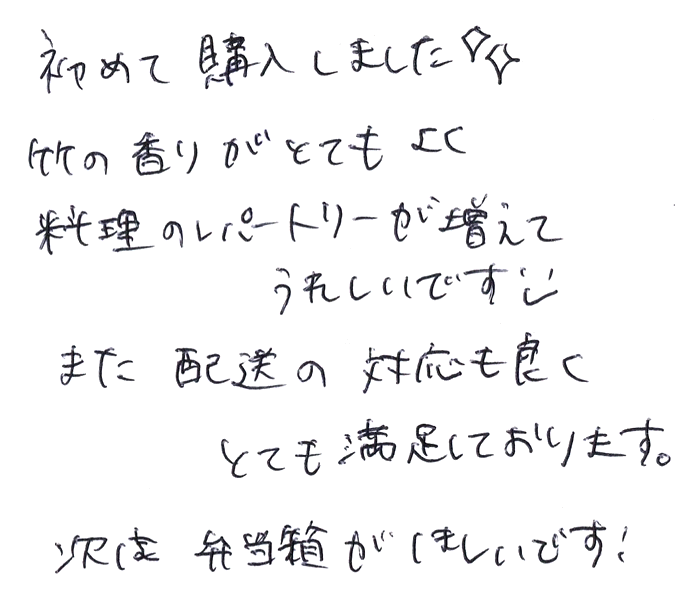 初めて購入しました✨
竹の香りがとてもよく
料理のレパートリーが増えて
うれしいです
また配送の対応も良く
とても満足しております。
次は弁当箱がほしいです!